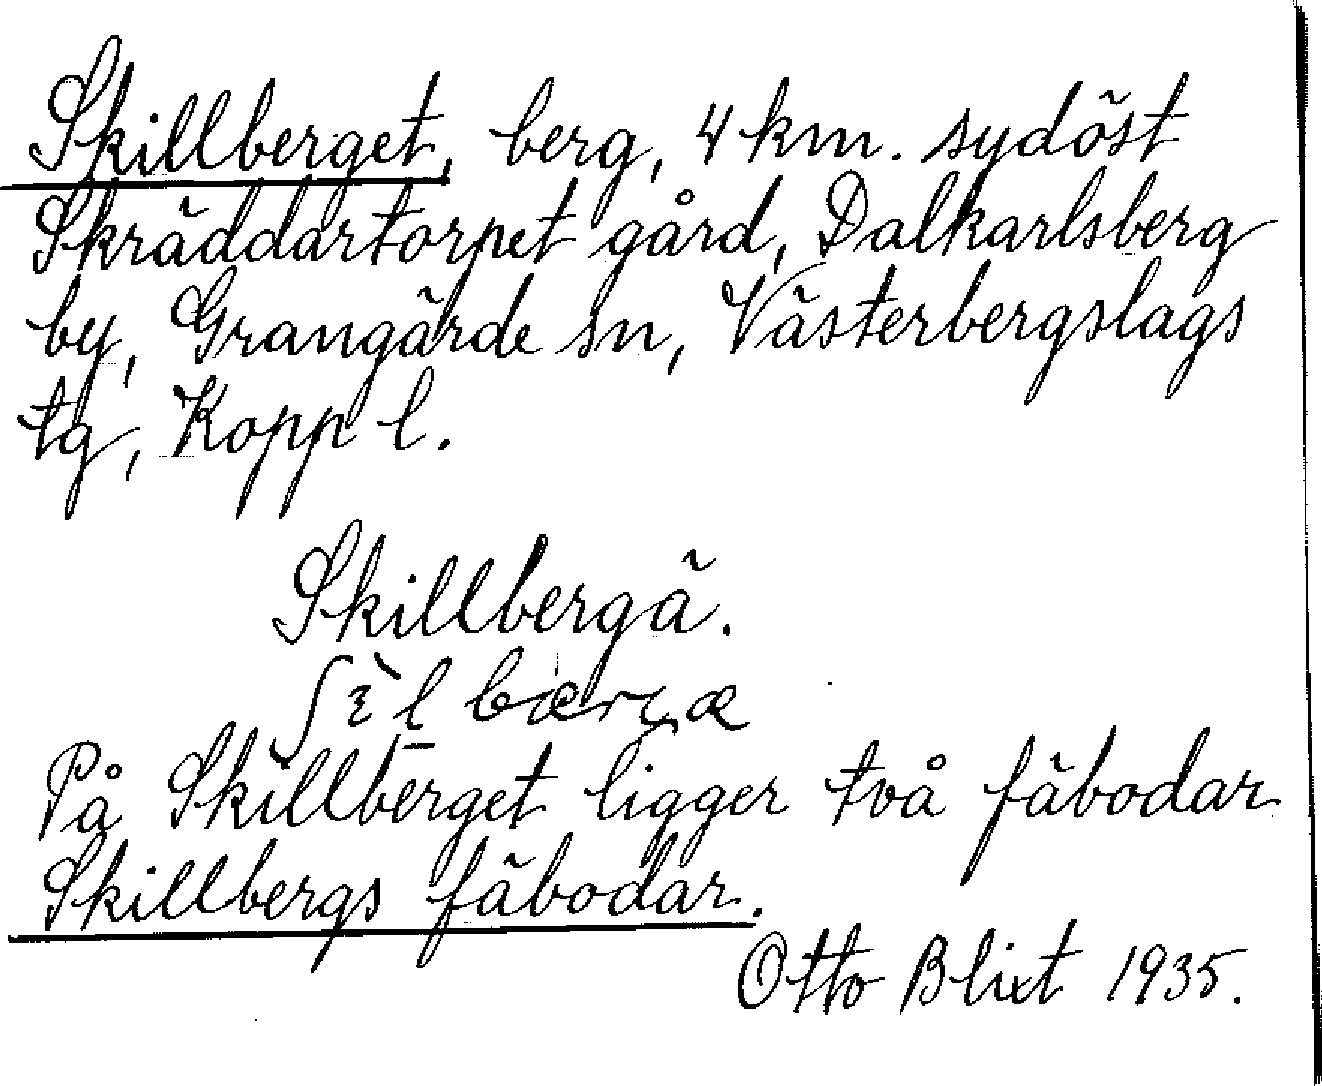 Skillberget, berg, 4 km. sydöst
Skräddartorpet gård, Dalkarlsberg
by, Grangärde sn, Västerbergslags
tg, Kopp l.
Skillbergä.
På Skillberget ligger två fäbodar
Skillbergs fäbodar.
Otto Blixt 1935.